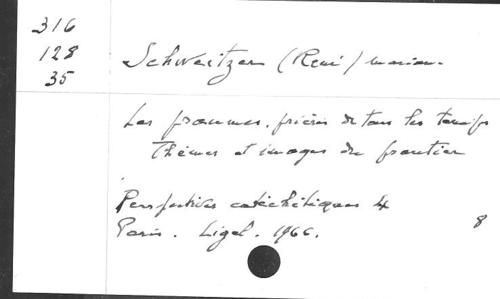 316
128
35
Schweitzer (René) marian.
Les psaumes. prières de tous les temps
Thèmes et images du psautier
Perspectives catéchétiques 4
Paris. Ligel. 1966.
8